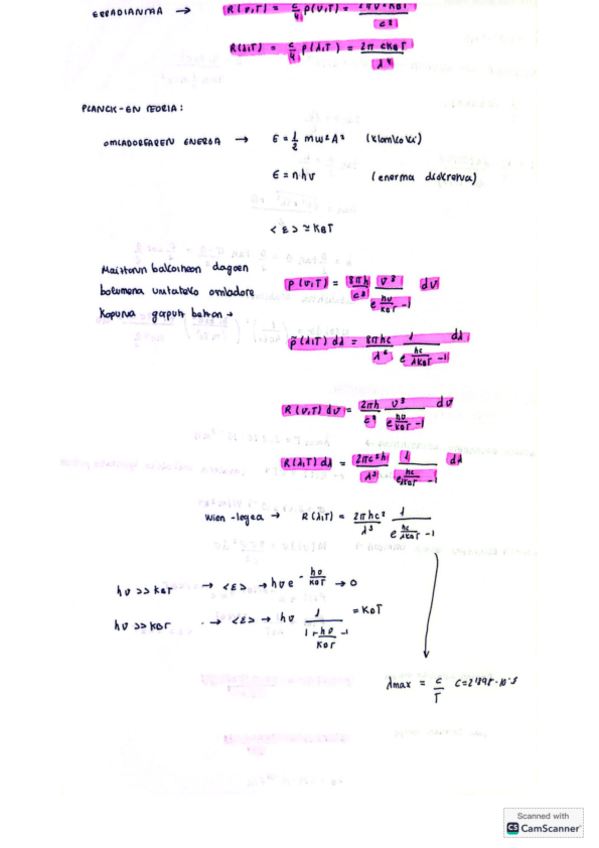 ERRADIANTZIA → R(ν,T) = c/4 ρ(ν,T) =
R(λ,T) = c/4 ρ(λ,T) = 2π cKBT / λ⁴
PLANCK-EN TEORIA:
OSZILADOREAREN ENERGIA → E = 1/2 mω²A² (Klasikoki)
E = nhν (energia diskretua)
<E> ≈ KBT
Maiztasun bakoitzean dagoen
bolumena unitateko osziladore
kopurua gorputz beltzean →
ρ(ν,T) = 8πh/c³ ν³/(e^(hν/KBT) -1) dν
ρ̃(λ,T) dλ = 8πhc/λ⁵ 1/(e^(hc/λKBT) -1) dλ
R(ν,T) dν = 2πh/c² ν³/(e^(hν/KBT) -1) dν
R(λ,T) dλ = 2πc²h/λ⁵ 1/(e^(hc/λKBT) -1) dλ
Wien-legea → R(λ,T) = 2πhc²/λ⁵ 1/(e^(hc/λKBT) -1)
hν >> KBT → <E> → hν e^(-hν/KBT) → 0
hν >> KBT → <E> → hν 1/(1+hν/KBT -1) = KBT
λmax = c/T C=2'898·10⁻³
Scanned with
CS CamScanner